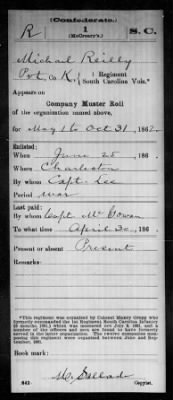 (Confederate.)
R 1 S. C.
(McCreary's.)
Michael Reilly
Pvt., Co. K, 1 Regiment
South Carolina Vols.*
Appears on
Company Muster Roll
of the organization named above,
for May 1 to Oct 31, 1862.
Enlisted:
When June 25, 186
Where Charleston
By whom Capt. Lee
Period war
Last paid:
By whom Capt. McGowan
To what time April 30, 186
Present or absent Present
Remarks:
*This regiment was organized by Colonel Maxcy Gregg who
formerly commanded the 1st Regiment South Carolina Infantry
(6 months, 1861,) which was mustered out July 9, 1861, and a
number of the officers and men are found to have taken service
in the latter organization. The twelve companies composing
this regiment were organized between June and September,
1861.
Book mark:
(642) Copyist.